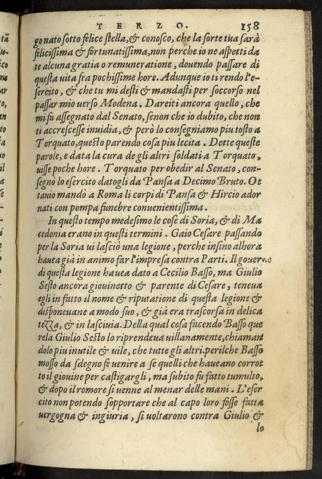 TERZO. 158
go nato sotto felice stella, & conosco, che la sorte tua sarà
felicissima & fortunatissima, non perche io ne aspetti da
te alcuna gratia o remuneratione, dovendo passare di
questa vita fra pochissime hore. Adunque io ti rendo l'es-
sercito, & che tu mi desti & mandasti per soccorso nel
passar mio verso Modena. Dareiti ancora quello, che
mi fu assegnato dal Senato, se non che io dubito, che non
ti accrescesse invidia, & però lo consegniamo piu tosto a
Torquato, questo parendo cosa piu lecita. Dette queste
parole, e data la cura de gli altri soldati a Torquato,
visse poche hore. Torquato per obedir al Senato, con-
segnò lo esercito datogli da Pansa a Decimo Bruto. Ot
tavio mandò a Roma li corpi di Pansa & Hircio ador
nati con pompa funebre convenientissima.
In questo tempo medesimo le cose di Soria, & di Ma
cedonia erano in questi termini. Gaio Cesare passando
per la Soria vi lasciò una legione, perche insino alhora
havea già in animo far l'impresa contra Parti. Il governo
di questa legione havea dato a Cecilio Basso, ma Giulio
Sesto ancora giovinetto & parente di Cesare, teneva
egli in fatto il nome & riputatione di questa legione &
disponevane a modo suo, & già era trascorsa in delica
tezza, & in lascivia. Della qual cosa facendo Basso que
rela Giulio Sesto lo riprendeva villanamente, chiaman
dolo piu inutile & vile, che tutte gli altri. perilche Basso
mosso da sdegno fe venire a se quelli che havea no corrot
to il giovine per castigargli, ma subito fu fatto tumulto,
& dopo il romore si venne al menar delle mani. L'eser
cito non potendo sopportare che al capo loro fosse fatta
vergogna & ingiuria, si voltarono contra Giulio &
lo